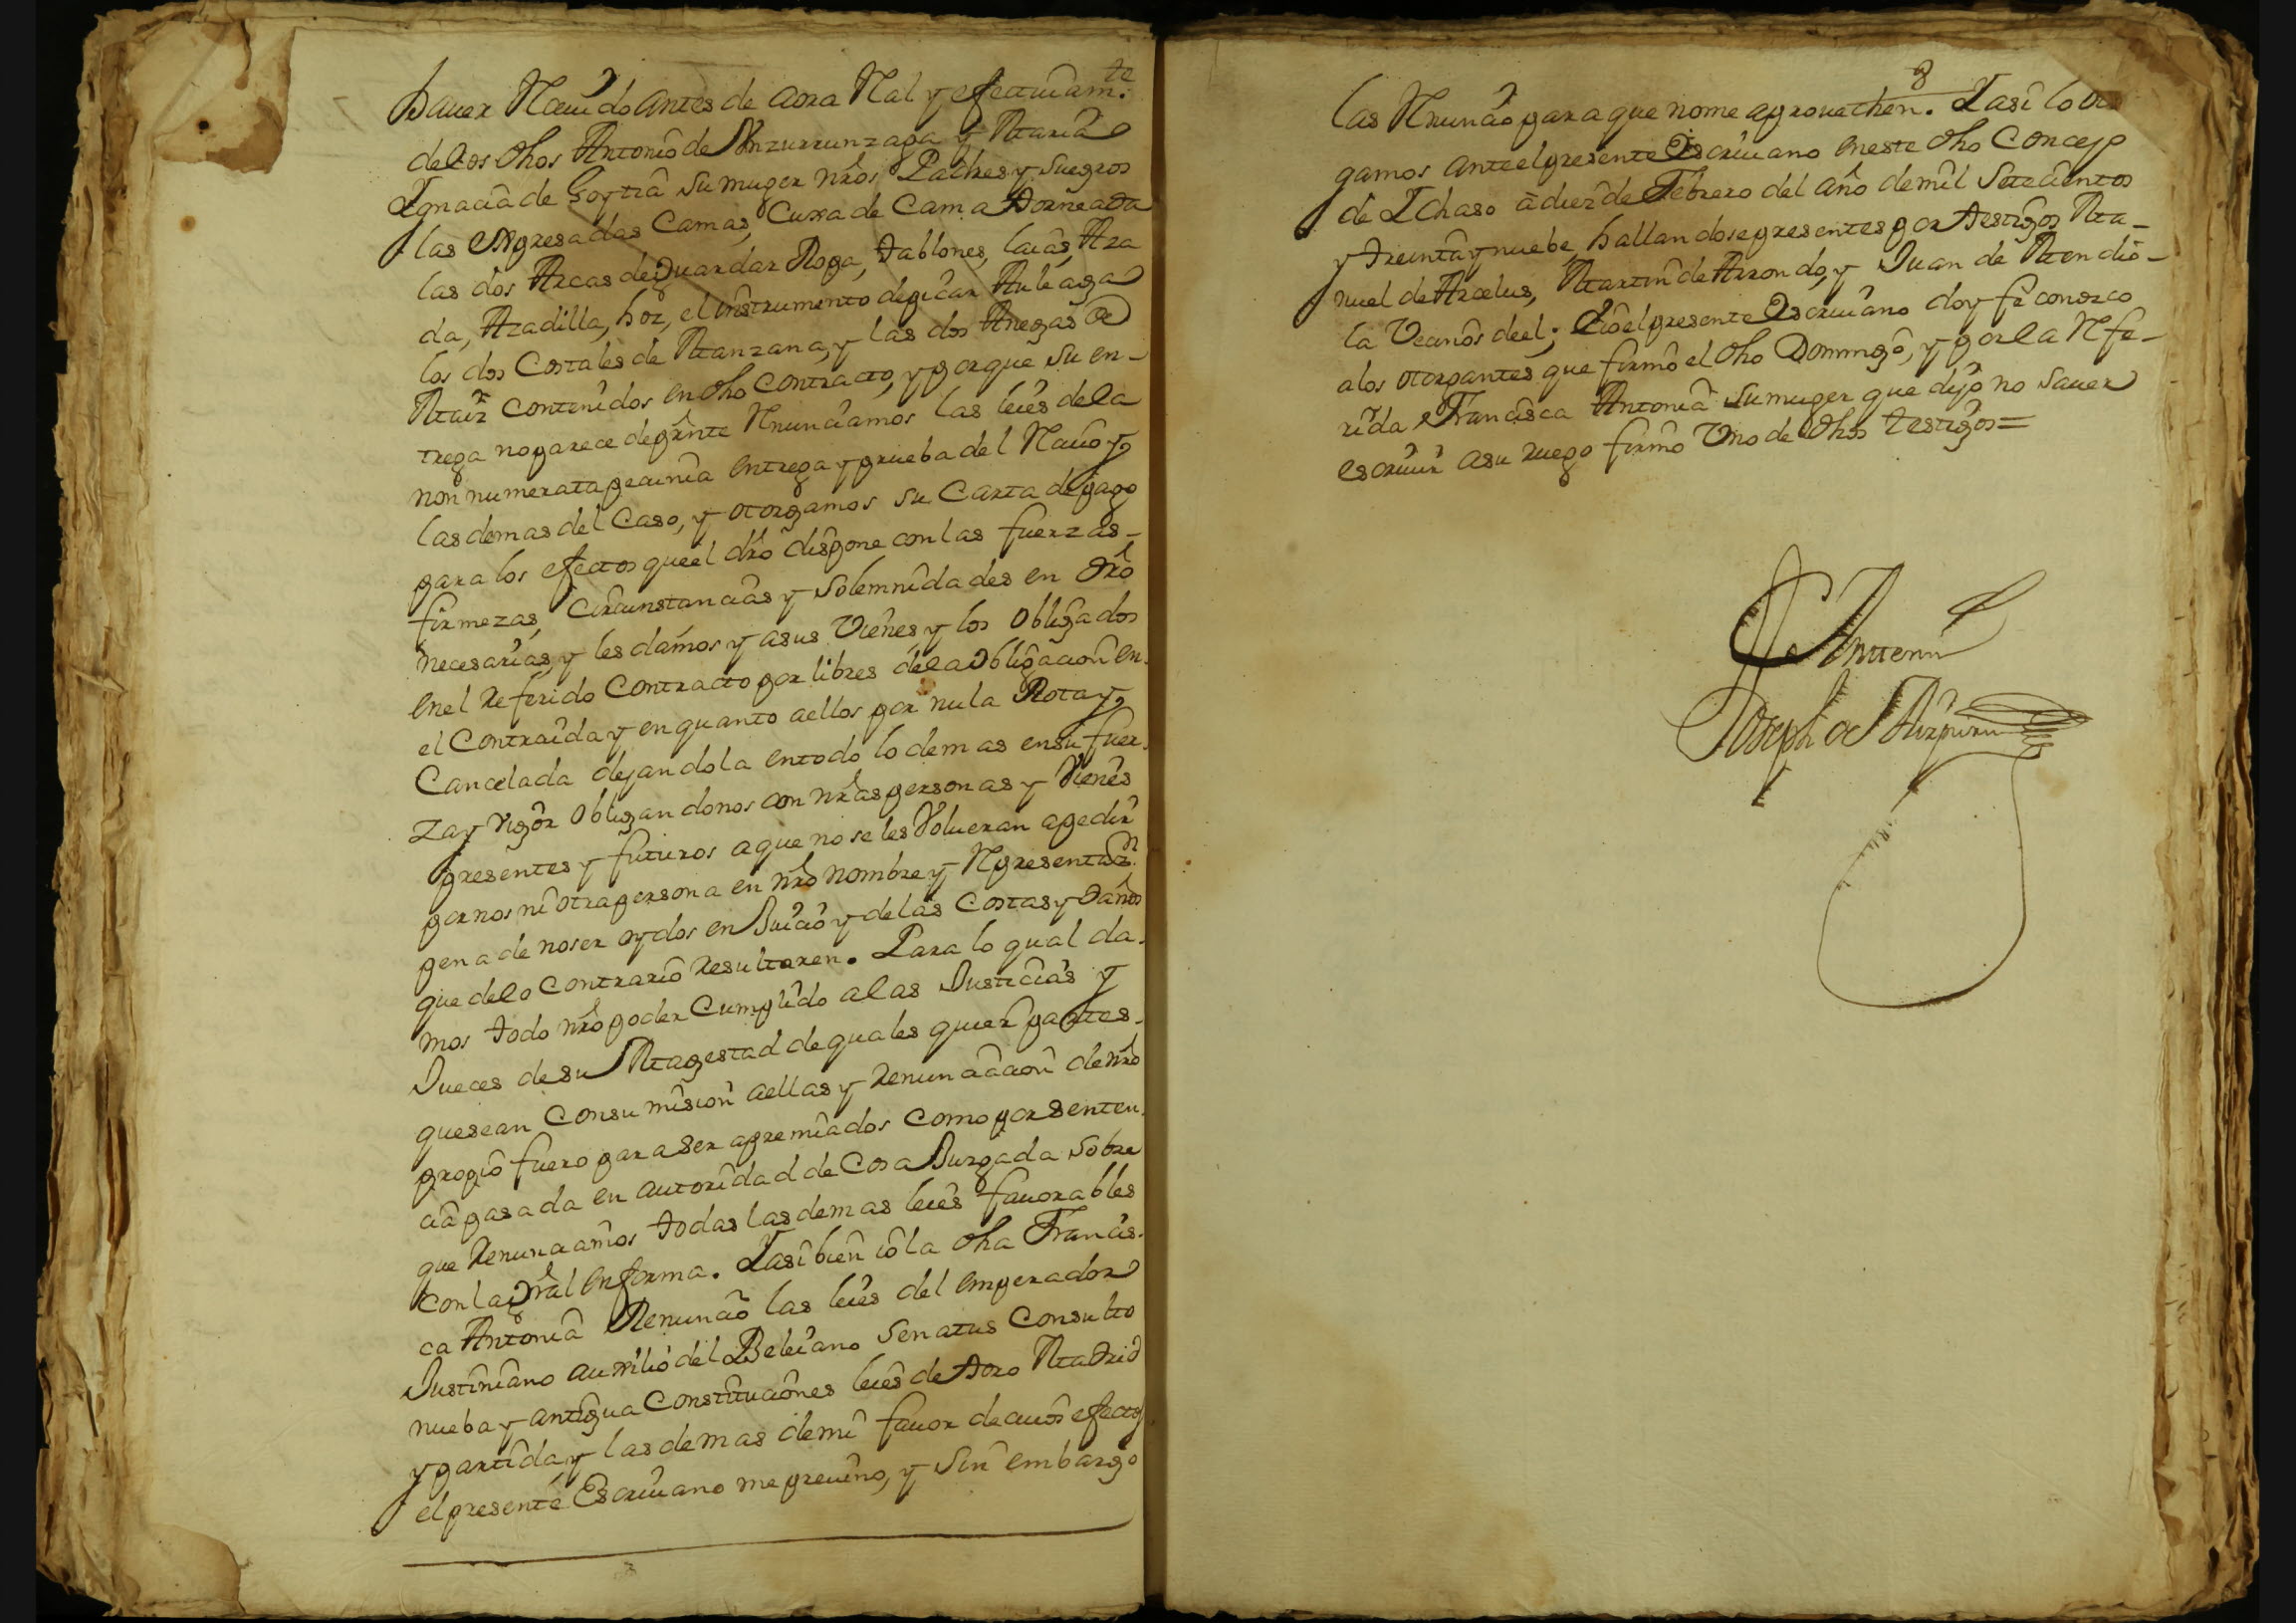 hauer Recuido antes de aora Real y efectiuam.te
delos dhos Antonio de Anzurrunzaga y Maria
Ygnacia de Goytia su muger nros Padres y suegros
las expresadas Camas, Cuxa de Cama torneada
las dos Arcas de guardar Ropa, tablones, laias, Aza
da, Azadilla, hoz, el instrumento de picar Auleaga
los dos Costales de Manzana, y las dos Anegas de
Maiz contenidos en dho contracto, y porque su en-
trega no parece de preste Renunciamos las leies dela
non numerata pecunia entrega y prueba del Reciuo y
las demas del Caso, y otorgamos su Carta de pago
para los efectos que el dro dispone con las fuerzas-
firmezas, circunstancias y solemnidades en dro
necesarias, y les damos y asus Vienes y los obligados
enel referido contracto por libres dela obligacion en
el contraida y en quanto aellos por nula Rota y
Cancelada dejandola entodo lo demas ensu fuer-
za y vigor obligandonos con nras personas y Vienes
presentes y futuros aque no se les Volueran apedir
por nos ni otra persona en nro nombre y Representaz.n
pena de noser oydos en Juicio y delas costas y daños
que delo contrario resultaren. Para lo qual da-
mos todo nro poder Cumplido alas Justicias y
Jueces de su Magestad de quales quier partes-
que sean consumision aellas y renunciacion de nro
propio fuero para ser apremiados como por senten
cia pasada en autoridad de Cosa Juzgada sobre
que renunciamos todas las demas leies fauorables
con la gral en forma. Y asi bien io la dha Francis-
ca Antonia Renuncio las leies del emperador
Justiniano auxilio del Beleiano senatus Consulto
nueba y antigua Constituciones leies de toro Madrid
y partida y las demas de mi fauor de cuios efectos
el presente Escriuano me preuino, y sin embargo
8
las Renuncio para que no me aprouechen. Y asi lo otor
gamos ante el presente Escriuano en este dho Concejo
de Ychaso à diez de Febrero del año de mil Setecientos
y treinta y nuebe, hallandose presentes por testigos Ma-
nuel de Arcelus, Martin de Arrondo, y Juan de Mendio-
la Vecinos de el; E io el presente Escriuano doy fe conozco
alos otorgantes que firmó el dho Domingo, y por la Refe-
rida Francisca Antonia su muger que dijo no sauer
escriuir asu ruego firmó Vno de dhos testigos=
Ante mi
Joseph de Aizpuru